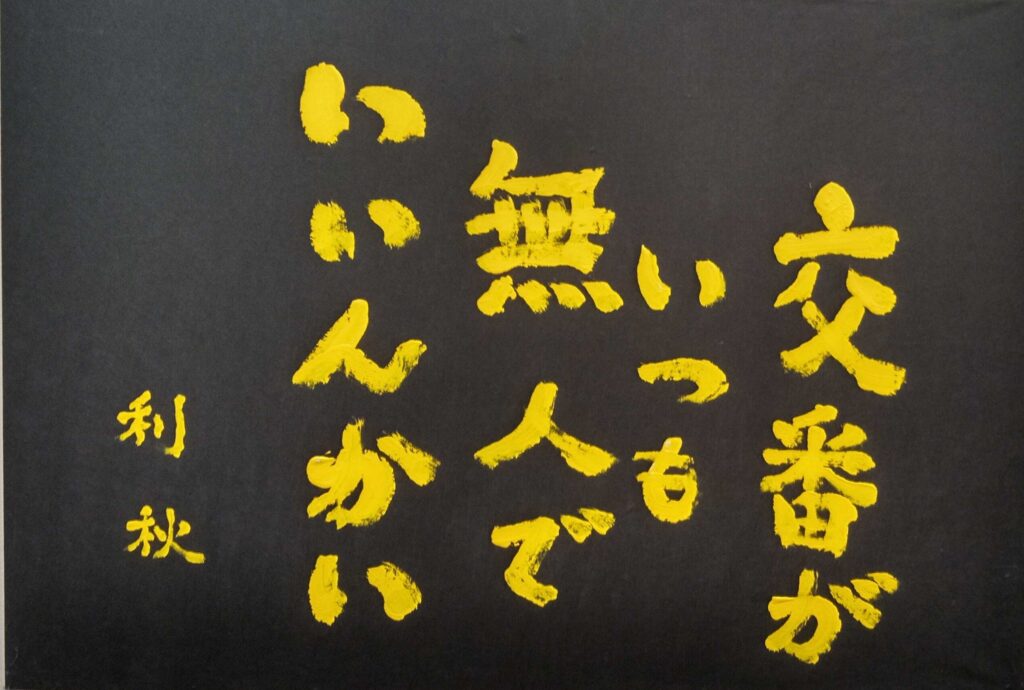 交番が
いつも
無人で
いいんかい
利秋